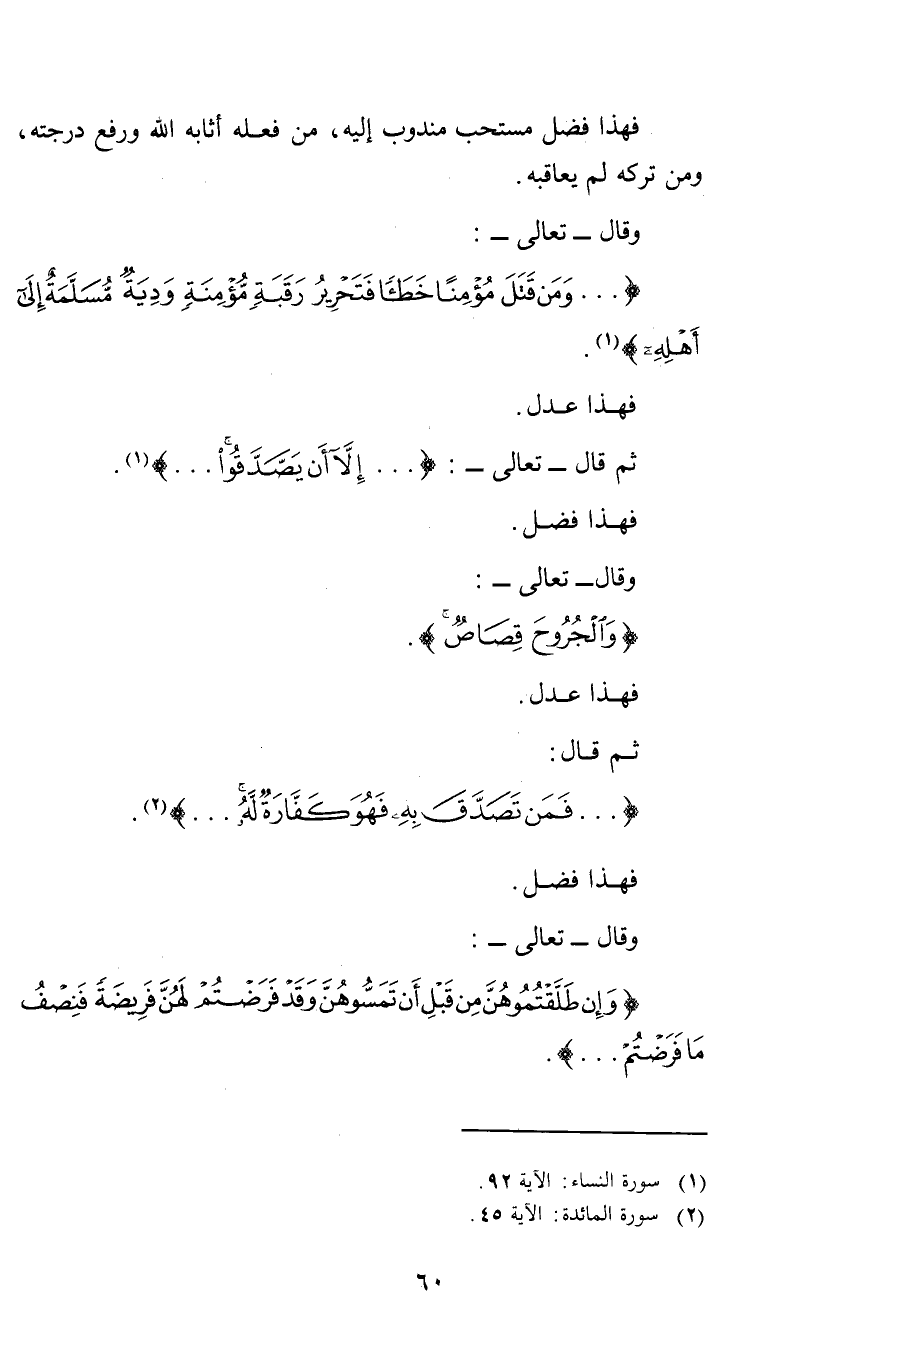 فهذا فضل مستحب مندوب إليه، من فعله أثابه الله ورفع درجته،
ومن تركه لم يعاقبه.
وقال ــ تعالى ــ :
﴿. . . وَمَن قَتَلَ مُؤْمِنًا خَطَـًٔا فَتَحْرِيرُ رَقَبَةٍ مُّؤْمِنَةٍ وَدِيَةٌ مُّسَلَّمَةٌ إِلَىٰٓ
أَهْلِهِۦ﴾(١).
فهذا عدل.
ثم قال ــ تعالى ــ : ﴿. . . إِلَّآ أَن يَصَّدَّقُوا۟ۚ . . .﴾(١).
فهذا فضل.
وقال ــ تعالى ــ :
﴿وَٱلْجُرُوحَ قِصَاصٌۚ﴾.
فهذا عدل.
ثم قال:
﴿. . . فَمَن تَصَدَّقَ بِهِۦ فَهُوَ كَفَّارَةٌ لَّهُۥۚ . . .﴾(٢).
فهذا فضل.
وقال ــ تعالى ــ :
﴿وَإِن طَلَّقْتُمُوهُنَّ مِن قَبْلِ أَن تَمَسُّوهُنَّ وَقَدْ فَرَضْتُمْ لَهُنَّ فَرِيضَةً فَنِصْفُ
مَا فَرَضْتُمْ . . .﴾.
(١) سورة النساء: الآية ٩٢.
(٢) سورة المائدة: الآية ٤٥.
٦٠